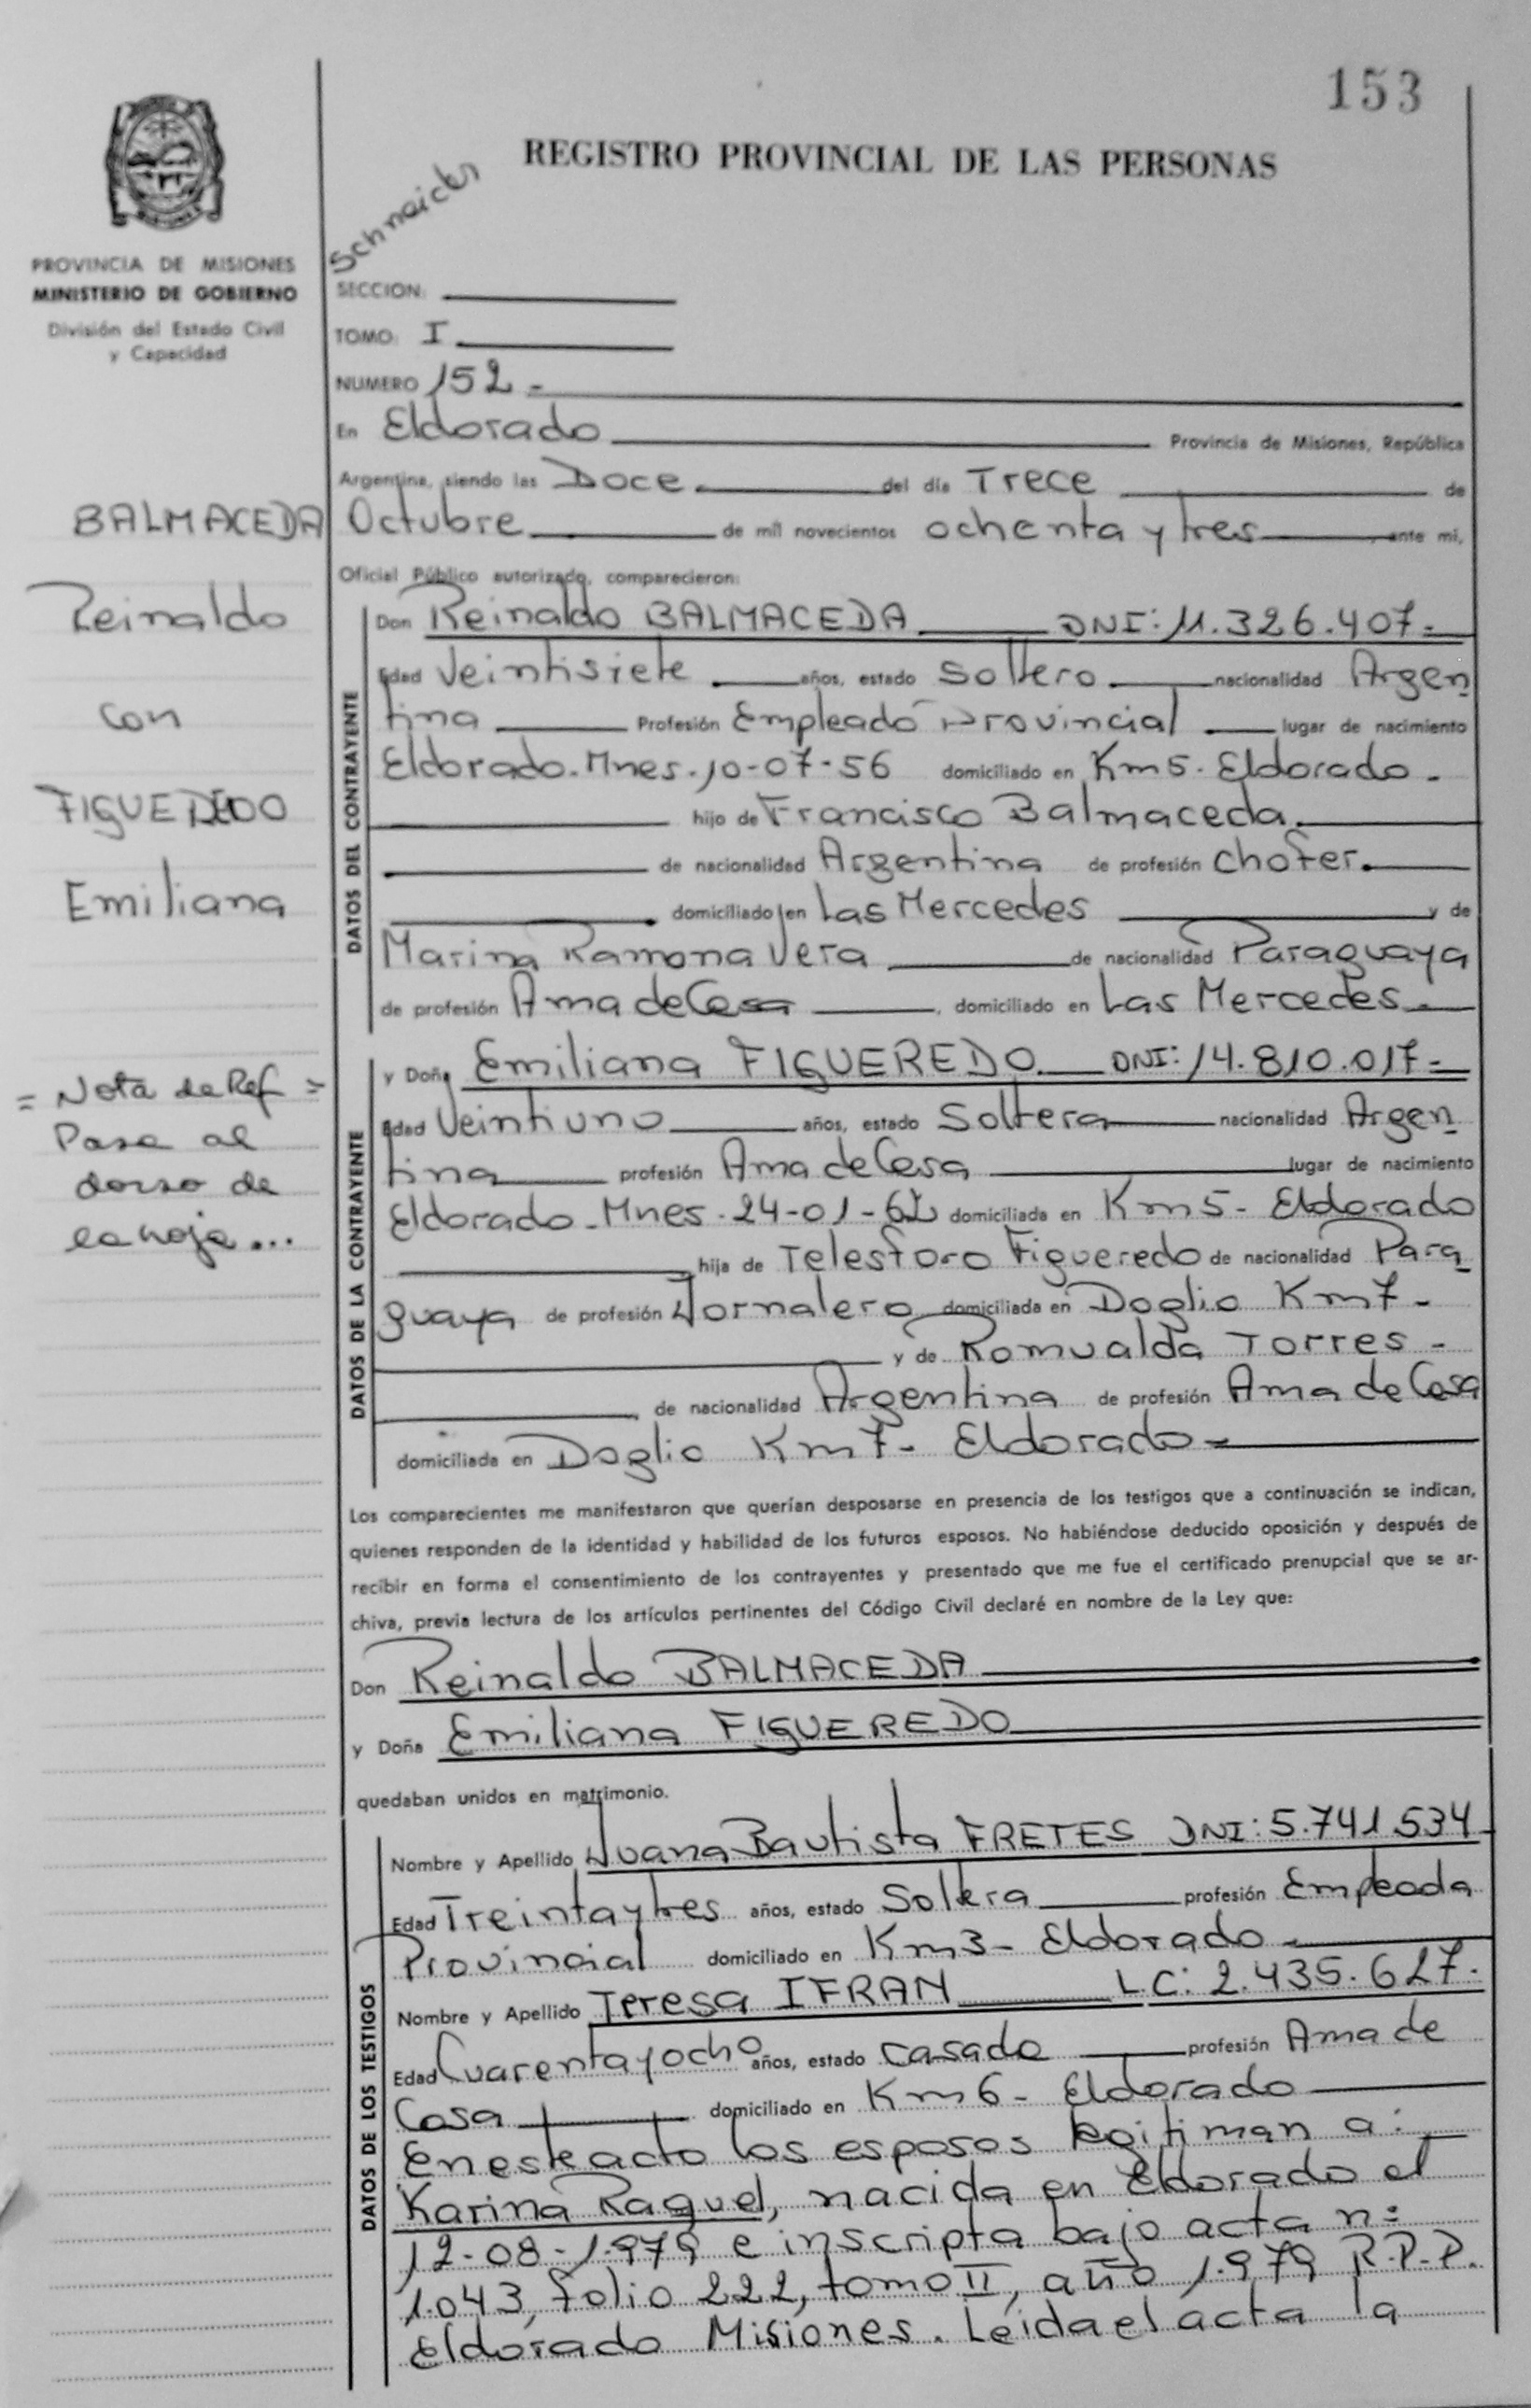 153
REGISTRO PROVINCIAL DE LAS PERSONAS
PROVINCIA DE MISIONES
MINISTERIO DE GOBIERNO
División del Estado Civil
y Capacidad
SECCION:
TOMO: I
NUMERO 152 -
En Eldorado Provincia de Misiones, República
Argentina, siendo las Doce del día Trece de
Octubre de mil novecientos ochenta y tres, ante mi,
Oficial Público autorizado, comparecieron:
BALMACEDA
Reinaldo
con
FIGUEREDO
Emiliana
= Nota de Ref =
Pasa al
dorso de
la hoja...
DATOS DEL CONTRAYENTE
Don Reinaldo BALMACEDA DNI: 11.326.407-
Edad Veintisiete años, estado Soltero nacionalidad Argen
tina Profesión Empleado Provincial lugar de nacimiento
Eldorado-Mnes-10-07-56 domiciliado en Km5-Eldorado-
hijo de Francisco Balmaceda.
de nacionalidad Argentina de profesión Chofer.
domiciliado en Las Mercedes y de
Marina Ramona Vera de nacionalidad Paraguaya
de profesión Ama de Casa, domiciliado en Las Mercedes-
DATOS DE LA CONTRAYENTE
y Doña Emiliana FIGUEREDO DNI: 14.810.017-
Edad Veintiuno años, estado Soltera nacionalidad Argen
tina profesión Ama de Casa lugar de nacimiento
Eldorado-Mnes-24-01-62 domiciliada en Km5- Eldorado
hija de Telesforo Figueredo de nacionalidad Para
guaya de profesión Jornalero domiciliada en Doglio Km7-
y de Romualda Torres -
de nacionalidad Argentina de profesión Ama de Casa
domiciliada en Doglio Km7- Eldorado-
Los comparecientes me manifestaron que querían desposarse en presencia de los testigos que a continuación se indican,
quienes responden de la identidad y habilidad de los futuros esposos. No habiéndose deducido oposición y después de
recibir en forma el consentimiento de los contrayentes y presentado que me fue el certificado prenupcial que se ar-
chiva, previa lectura de los artículos pertinentes del Código Civil declaré en nombre de la Ley que:
Don Reinaldo BALMACEDA
y Doña Emiliana FIGUEREDO
quedaban unidos en matrimonio.
DATOS DE LOS TESTIGOS
Nombre y Apellido Juana Bautista FRETES DNI: 5.741.534
Edad Treinta y tres años, estado Soltera profesión Empleada
Provincial domiciliado en Km3- Eldorado-
Nombre y Apellido Teresa IFRAN L.C: 2.435.627-
Edad Cuarenta y ocho años, estado Casada profesión Ama de
Casa domiciliado en Km6- Eldorado
En este acto los esposos legitiman a:
Karina Raquel, nacida en Eldorado el
12-08-1.979 e inscripta bajo acta n:
1.043, folio 222, tomo II, año 1.979 R.P.P.
Eldorado Misiones. Leida el acta la